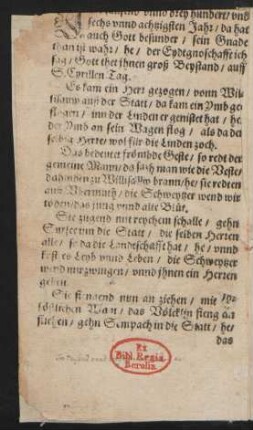 tausend vnnd drey hundert/ vnd
sechs vnnd achtzigsten Jahr/ da hat
auch Gott besunder/ sein Gnade
than zů wahr/ he/ der Eydtgnoschafft ich
sag/ Gott thet jhnen groß Beystand/ auff
S. Cyrillen Tag.
Es kam ein Herr gezogen/ vonn Wil
auß der Statt/ da kam ein Ymb ge
flogen/ inn der Linden er genistet hat/ he
der Ymb an sein Wagen flog/ als da der
selbig Herre/ wol für die Linden zoch.
Das bedeutet frömbde Geste/ so redt der
gemeine Mann/ da sah man wie die Veste/
dahinden zů Willisow brann/ he/ sie redten
auß Vbermuth/ die Schweytzer wend wir
tödten/ das jung vnnd alte Blůt.
Sie zugend mit reychem schalle/ gehn
Sursee inn die Statt/ die selben Herren
alle/ so da die Landschafft hat/ he/ vnnd
kost es Leyb vnnd Leben/ die Schweytzer
wend wir zwingen/ vnnd jhnen ein Herren
geben.
Sie fiengend nun an ziehen/ mit
Wat/ das Völcklin fieng an
fliehen/ gehn Sempach in die Statt/ he/
das
Ex
Bibl. Regia
Berolin.